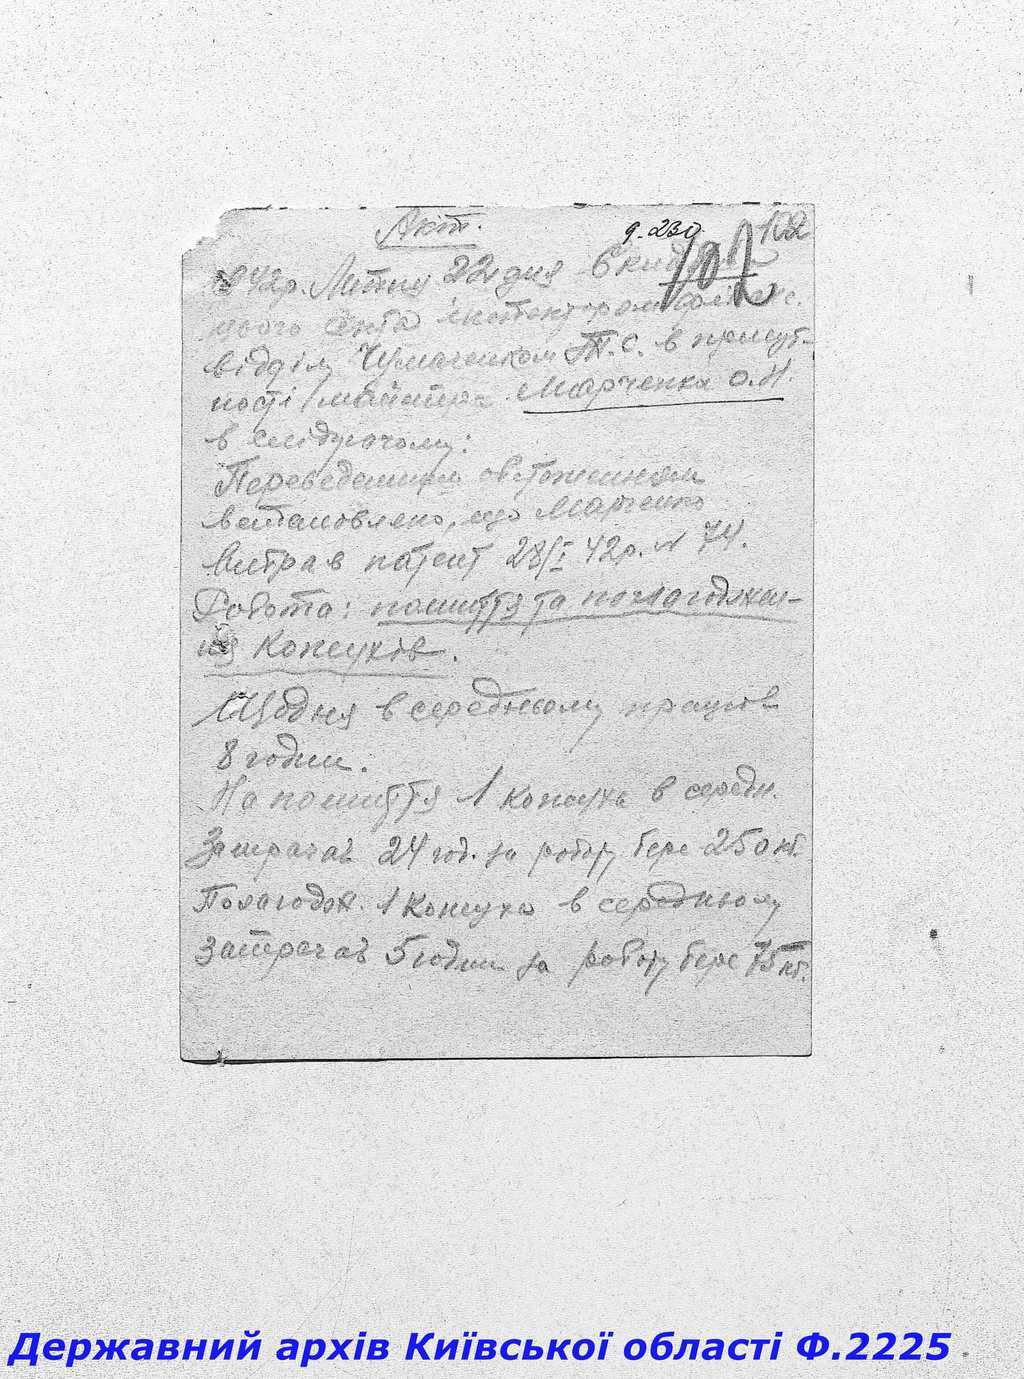 Акт.
9.230
102
107
1942р. Лютия 22 дня
цього акта інспектором фінанс.
відділу Чумаченком Т.С. в присут-
ності майстра Марченка О.Н.
в слідуючому:
Переведеним обстеженням
встановлено, що Марченко
Витрав патент 28/I 42р. № 74.
Робота: пошиття та полагоджен-
ня Кожухів.
Щодня в середньому працює
8 годин.
На пошиття 1 кожуха в середн.
Затрачає 24 год. за роботу бере 250 кб.
Полагодж. 1 кожуха в середньому
Затрачає 5 годин за роботу бере 75 кб.
Державний архів Київської області Ф.2225